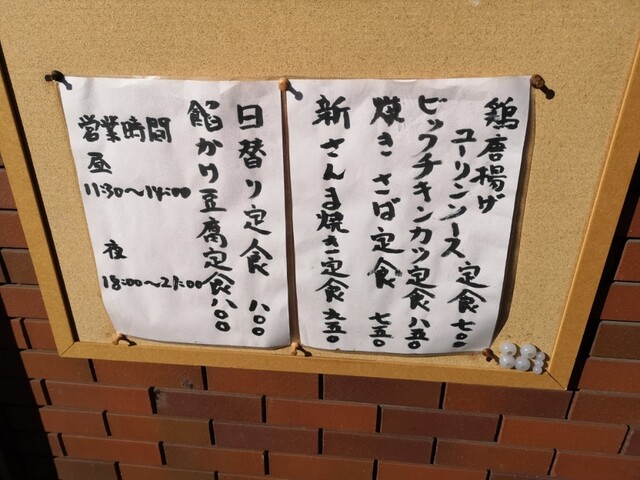 鶏唐揚げ
ユーリンソース 定食 七〇〇
ビックチキンカツ定食 八五〇
焼きさば定食 七五〇
新さんま焼き定食 九五〇
日替り定食 八〇〇
餡かけ豆腐定食 八〇〇
営業時間
昼
11:30〜14:00
夜
18:00〜21:00